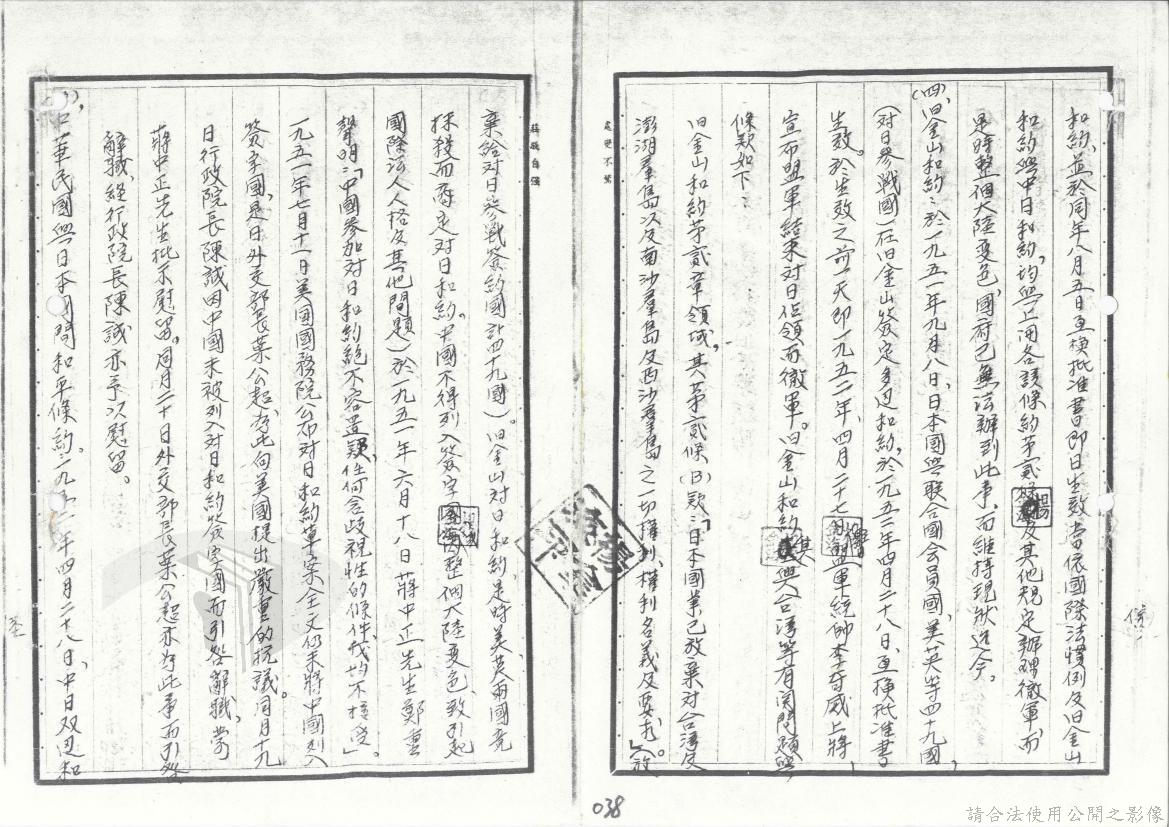 和約,並於同年八月五日互換批准書即日生效,當依國際法慣例及旧金山
和約與中日和約,均與上開各該條約第貳條及其他規定辦理撤軍,而
是時整個大陸變色,國府已無法辦到此事,而維持現狀迄今。
(四)、旧金山和約:於一九五一年九月八日、日本國與联合國会員國、美英等四十九國,
(对日參戰國)在旧金山簽定多边和約,於一九五二年四月二十八日、互換批准書
生效。於生效之前一天即一九五二年、四月二十七日盟軍統帥李奇威上將
宣布盟軍結束对日佔領而撤軍。旧金山和約其與台湾等有関問題與
條款如下:
旧金山和約第貳章領域,其第貳條(B)款:「日本國業已放棄对台湾及
澎湖群島以及南沙群島及西沙群島之一切權利、權利名義及要求」。(放
處變不驚
莊敬自強
棄給对日參戰簽約國計四十九國)。旧金山对日和約是時美英兩國竟
抹殺而否定对日和約。中國不得列入簽字國(因整個大陸變色、致引起
國際法人人格及其他問題)於一九五一年六月十八日蔣中正先生鄭重
聲明:「中國參加对日和約絕不容置疑、任何含歧視性的條件、我均不接受」。
一九五一年七月十一日美國國務院公布对日和約草案全文仍未將中國列入
簽字國,是日外交部長葉公超為此向美國提出嚴重的抗議。同月十九
日行政院長陳誠因中國未被列入对日和約簽字國而引咎辭職,當
蔣中正先生批示慰留。同月二十日外交部長葉公超亦為此事而引咎
辭職,經行政院長陳誠亦予以慰留。
中華民國與日本國間和平條約:一九五二年四月二十八日、中日双边和
038
請合法使用公開之影像